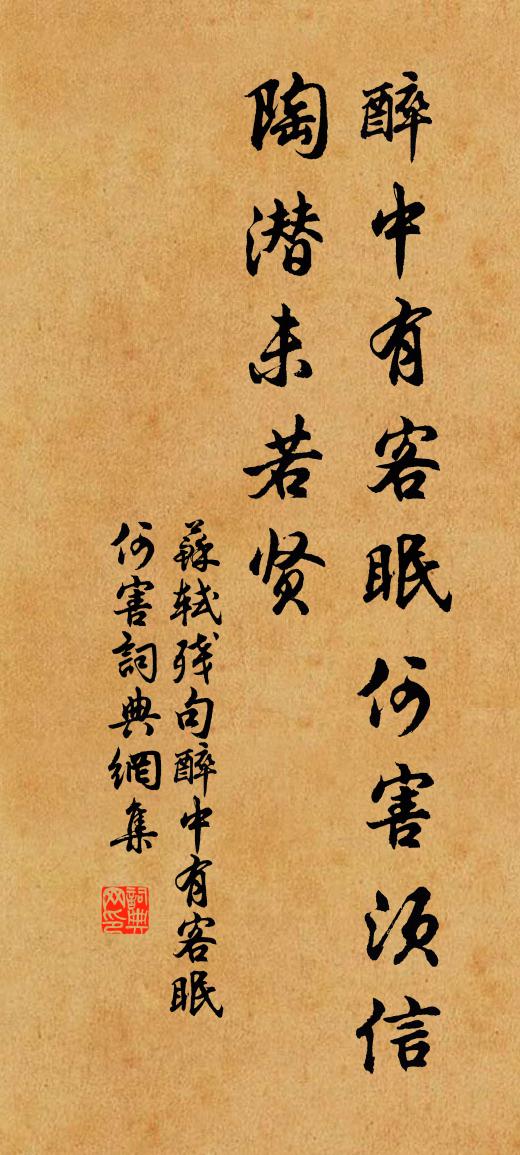 醉中有客眠何害须信
陶潜未若贤
蘇軾殘句醉中有客眠
何害詞典網集
詞典网印